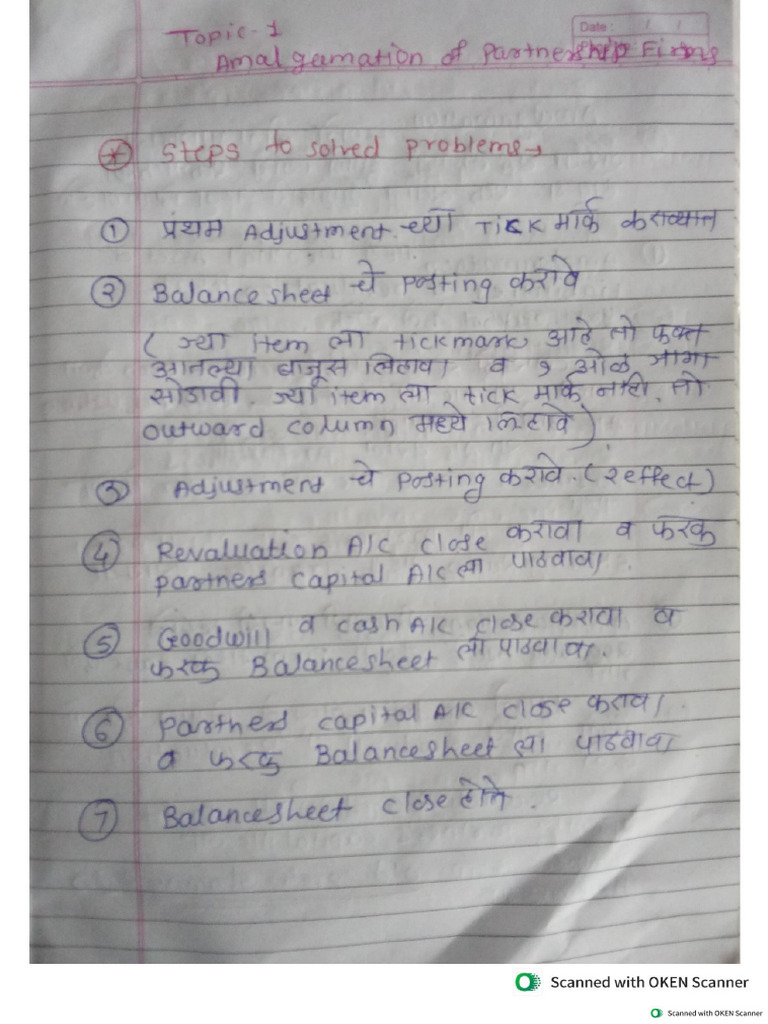 Date : / /
Topic-1
Amalgamation of Partnership Firms
* Steps to solved problems→
① प्रथम Adjustment च्या Tick मार्क कराव्यात
② Balance sheet चे Posting करावे
( ज्या item ला tickmark आहे तो फक्त
आतल्या बाजूस लिहावा व २ ओळ जागा
सोडावी. ज्या item ला tick मार्क नाही. तो
outward column मध्ये लिहावे )
③ Adjustment चे Posting करावे. (2 effect)
④ Revaluation A/c close करावा व फरक
partners capital A/c ला पाठवावा.
⑤ Goodwill व cash A/c close करावा व
फरक Balancesheet ला पाठवावा.
⑥ Partners capital A/c close करावा
व फरक Balancesheet ला पाठवावा
⑦ Balancesheet close होते.
Scanned with OKEN Scanner
Scanned with OKEN Scanner